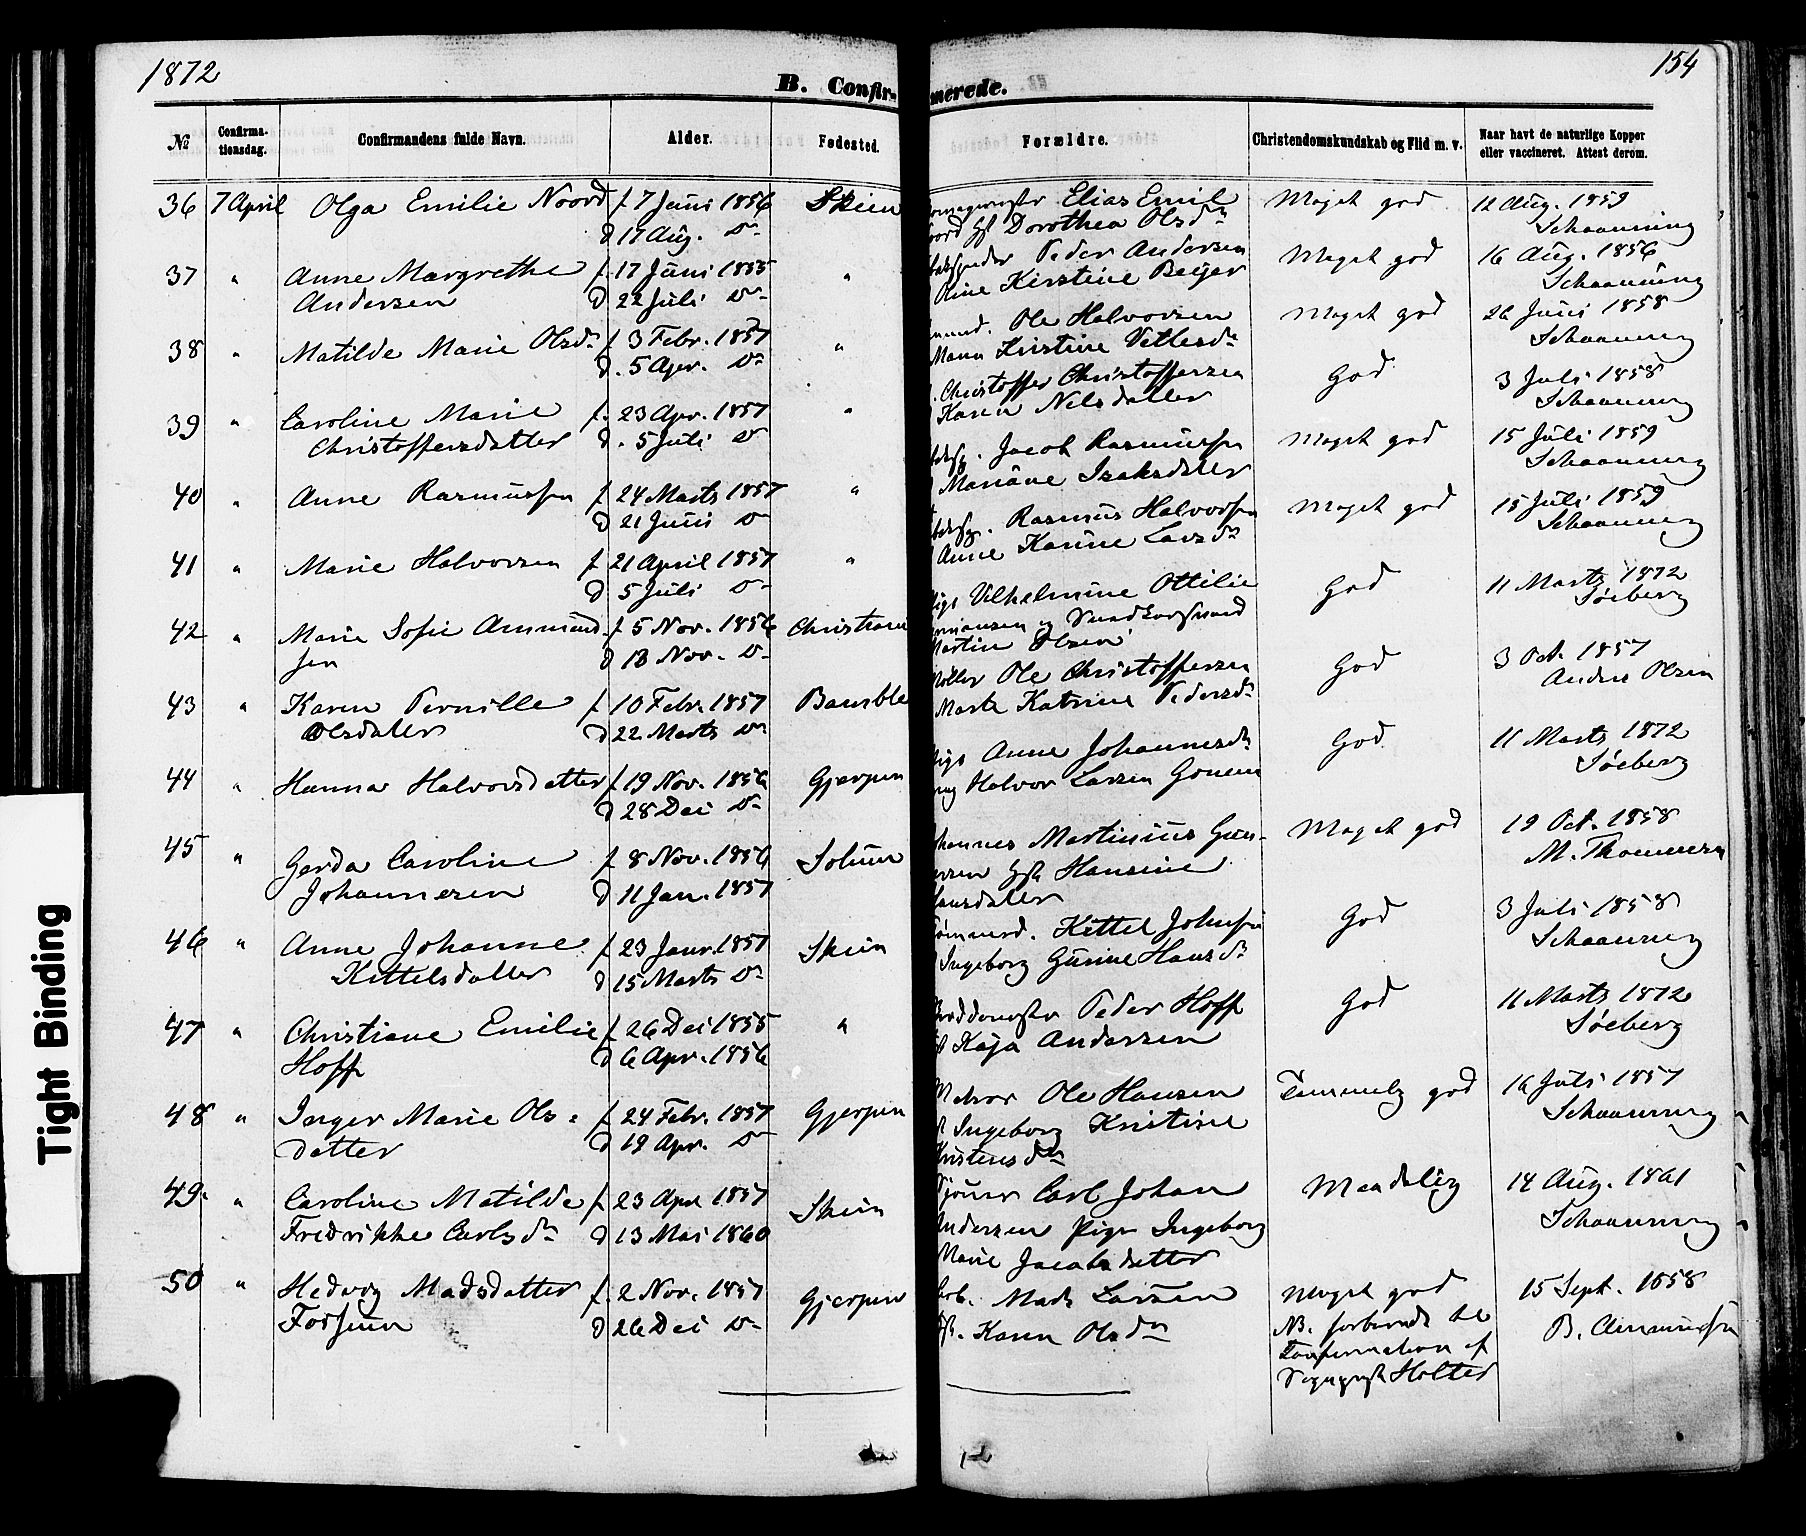 1872
154
B. Confir-
merede.
№
Confirma-
tionsdag.
Confirmandens fulde Navn.
Alder.
Fødested.
Forældre.
Christendomskundskab og Flid m. v.
Naar havt de naturlige Kopper
eller vaccineret. Attest derom.
36 7 April Olga Emilie Noord f 7 Juni 1856 Skien Elias Emil Meget god 12 Aug. 1859
d 17 Aug. Do Dorothea Olsdr Schaanning
37 " Anne Margrethe f. 17 Juni 1855 " Peder Andersen Meget god 16 Aug. 1856
Andersen d 22 Juli Do Oline Kirstine Beyer Schaanning
38 " Matilde Marie Olsdr f 3 Febr. 1857 " Ole Halvorsen Meget god 26 Juni 1858
d. 5 Apr. Do Maren Kristine Vetlesdr Schaanning
39 " Caroline Marie f. 23 Apr. 1857 " Christoffer Christoffersen God 3 Juli 1858
Christoffersdatter d. 5 Juli Do Karen Nilsdatter Schaanning
40 " Anne Rasmussen f 24 Marts 1857 " Jacob Rasmussen Meget god 15 Juli 1859
d 21 Juni Do Mariane Isaksdatter Schaanning
41 " Marie Halvorsen f 21 April 1857 " Rasmus Halvorsen Meget god 15 Juli 1859
d 5 Juli Do Anne Karine Larsdr Schaanning
42 " Marie Sofie Ammund- f 5 Nov. 1856 Christiania Vilhelmine Ottilie God 11 Marts 1872
sen d 13 Nov. Do og Søeberg
Martin Olsen
43 " Karen Pernille f 10 Febr. 1857 Bamble Møller Ole Christoffersen God 3 Oct. 1857
Olsdatter d 22 Marts Do Marte Katrine Pedersdr Anders Olsen
44 " Hanna Halvorsdatter f 19 Nov. 1856 Gjerpen Anne Johannesdr God 11 Marts 1872
d 28 Dei Do Halvor Larsen Søeberg
45 " Gerda Caroline f 8 Nov. 1856 Solum Martinius Gun- Meget god 19 Oct. 1858
Johannesen d 11 Jan. 1857 Hansine M. Thommesen
46 " Anne Johanne f 23 Janr. 1857 Skien Kittel Johnsen God 3 Juli 1858
Kittelsdatter d 15 Marts Do Ingeborg Gurine Hansdr Schaanning
47 " Christiane Emilie f 26 Dei 1855 " Peder Hoff God 11 Marts 1872
Hoff d 6 Apr. 1856 Kaja Andersen Søeberg
48 " Inger Marie Ols- f 24 Febr. 1857 Gjerpen Ole Hansen Temmelig god 16 Juli 1857
datter d 19 Apr. Do Ingeborg Kristine Schaanning
49 " Caroline Matilde f 23 Apr 1857 Skien Carl Johan Maadelig 14 Aug. 1861
Fredrikke Carlsdr d 13 Mai 1860 Andersen Pige Ingeborg Schaanning
Marie Jacobsdatter
50 " Hedvig Madsdatter f. 2 Nov. 1857 Gjerpen Mads Larsen Meget god 15 Sept. 1858
Fossum d 26 Dei Do Karen Olsdr NB. forberedt til B. Ammundsen
Confirmation af
Sogneprest Holter
Tight Binding